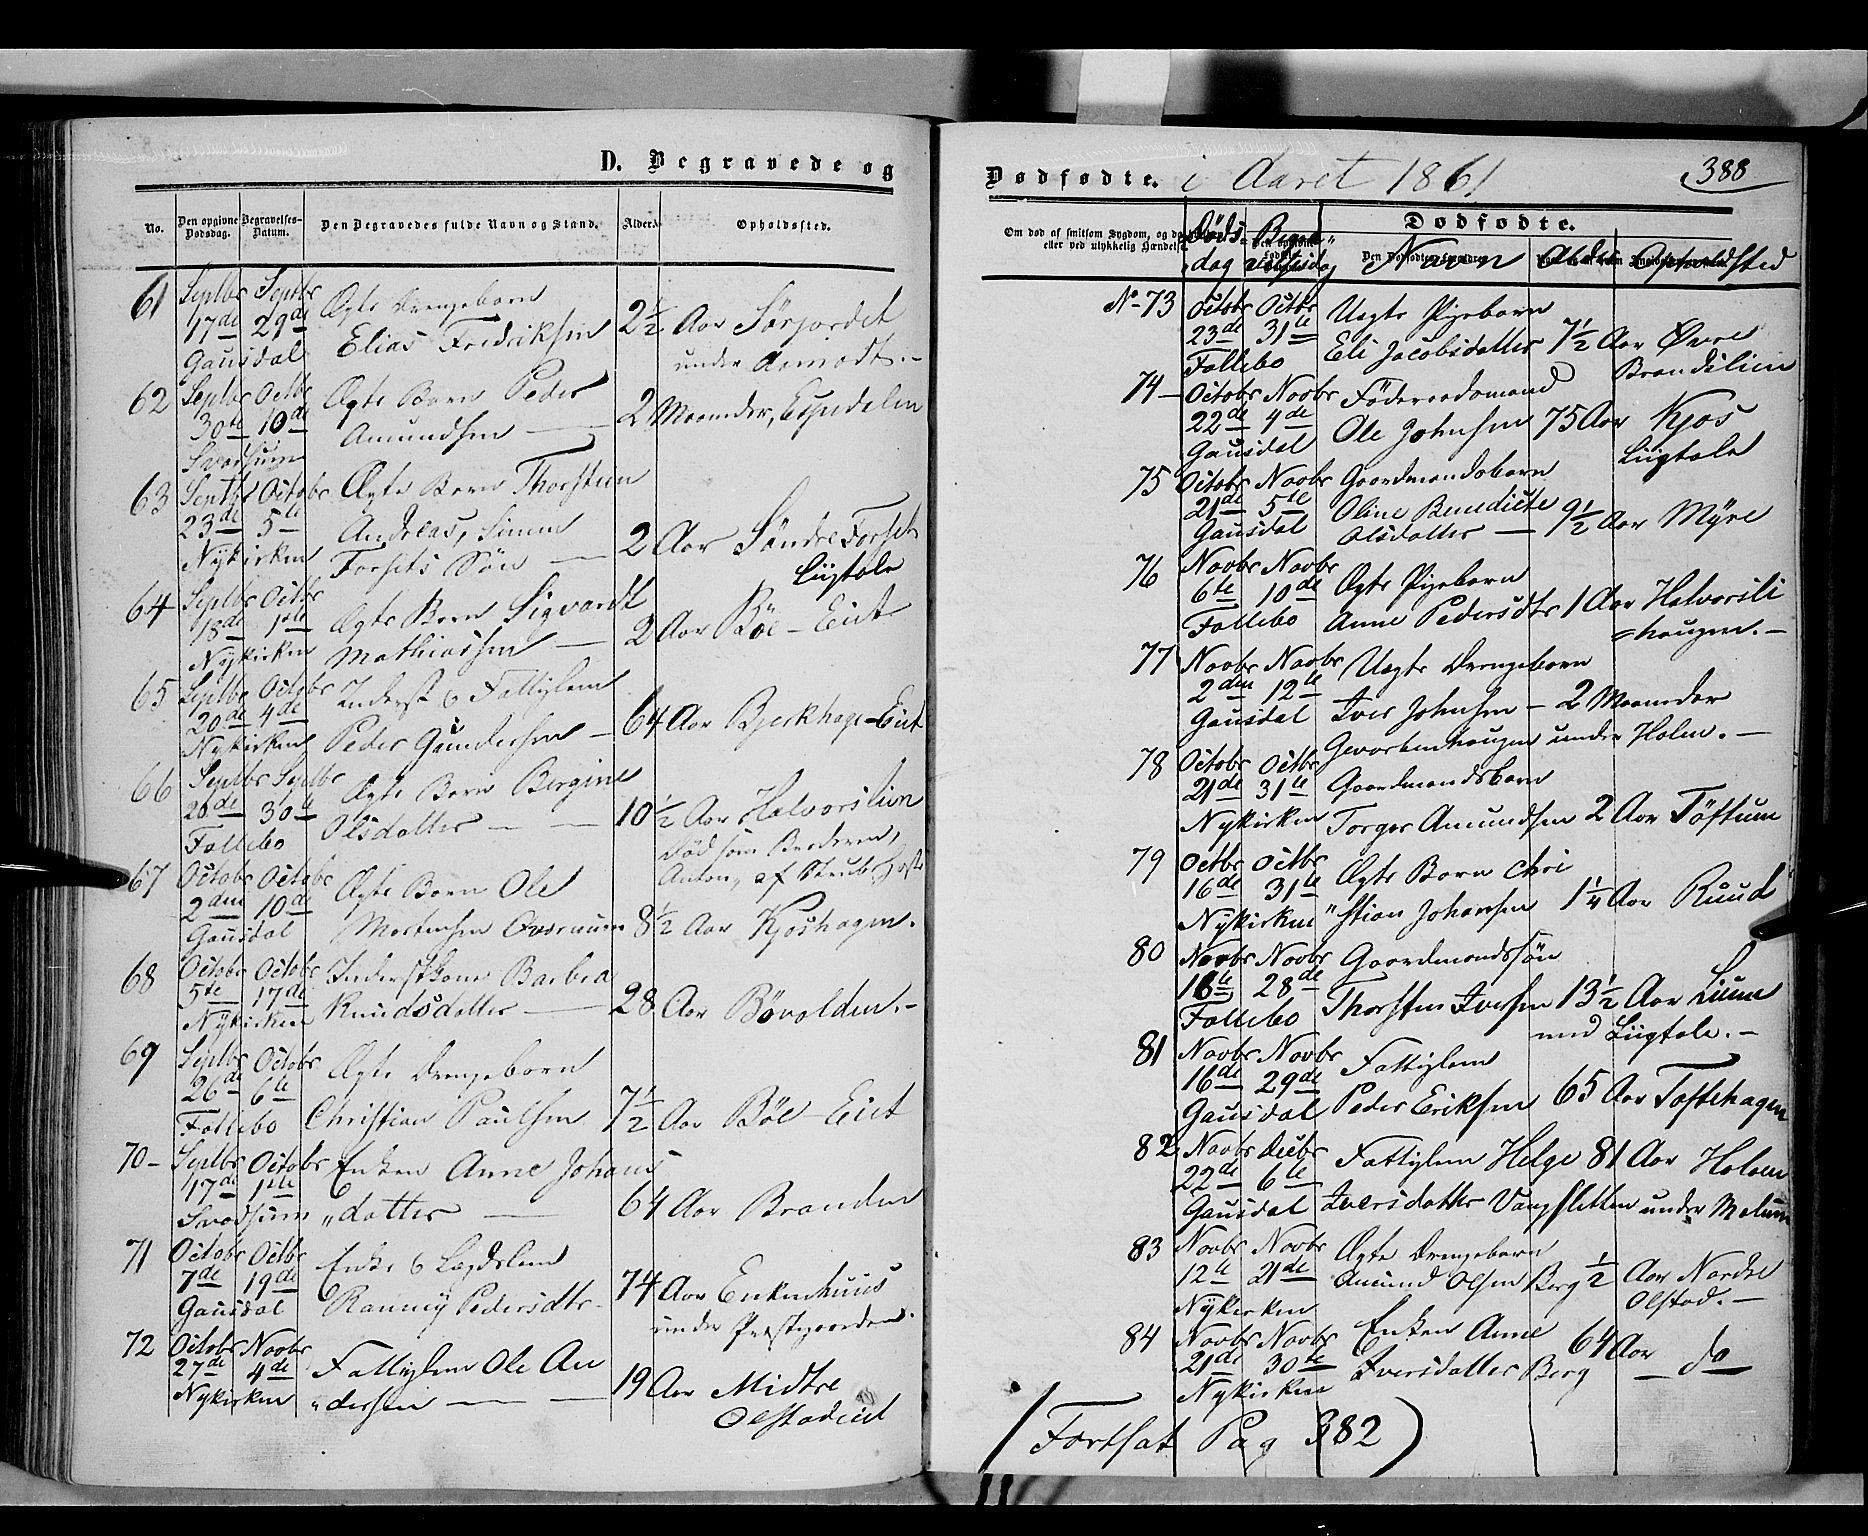 D. Begravede og
No.
Den opgivne Dødsdag.
Begravelses-Datum.
Den Begravedes fulde Navn og Stand.
Alder.
Opholdssted.
61 Septbr Septbr Ægte Drengebarn
17de 29de Elias Fredriksen 2½ Aar Sørjordet
Gausdal under
62 Septbr Octbr Ægte Barn Peder
30te 10de Amundsen — 2 Maaneder, Espedalen
Svatsum
63 Septbr Octobr Ægte Barn Thorsten
23de 5te Andreas, Simen
Nykirken Forsets Søn — 2 Aar Søndre Forset
Liigtale
64 Septbr Octbr Ægte Barn Sigvardt
18de 1ste Mathiassen — 2 Aar Böe-Eiet
Nykirken
65 Septbr Octobr Inderst & Fattiglem
20de 4de Peder Gundersen — 64 Aar Bjerkhage-Eiet
Nykirken
66 Septbr Septbr Ægte Barn Bergine
20de 30te Olsdatter — — 10½ Aar Halvorslien
Follebo Död som Broderen,
Anton, af Strubehoste
67 Octobr Octobr Ægte Barn Ole
2den 10de Mortensen 8½ Aar Kjoshagen.
Gausdal
68 Octobr Octobr Inderstkone Barbra
5te 17de Knudsdatter — 28 Aar Bövolden.-
Nykirken
69 Septbr Octobr Ægte Drengebarn
26de 6te Christian Paulsen 7½ Aar Böe-Eiet
Follebo
70- Septbr Octobr Enken Anne Johans
17de 1ste "datter — 64 Aar Branden
Svatsum
71 Octobr Octbr Enke & Lægdslem
7de 19de Ranney Pedersdtr. 74 Aar Enkenhuus
Gausdal under Prestgaarden.
72 Octobr Novbr Fattiglem Ole An
27de 4de "dersen — — 19 Aar Midtre
Nykirken Olstadeiet
Dødfødte. i Aaret 1861
388
Om død af smitsom Sygdom, og da
eller ved ulykkelig Hændelse
Dødfødte.
Döds-dag
Begravelsesdag
Navn
Alder
Opholdsted
No 73 Octobr Octbr Uægte Pigebarn
23de 31te Eli Jacobsdatter 7½ Aar Øvre
Follebo Brandslien
74- Octobr Novbr Föderaadsmand
22de 4de Ole Johnsen 75 Aar Kjos
Gausdal Liigtale
75 Octobr Novbr Gaardmandsbarn
21de 5te Oline Benedicte
Gausdal Olsdatter — 9½ Aar Myre
76 Novbr Novbr Ægte Pigebarn
6te 10de Anne Pedersdtr 1 Aar Halvorsli
Follebo =haugen.-
77 Novbr Novbr Uægte Drengebarn
2den 12te Iver Johnsen - 2 Maaneder
Gausdal under Holen.-
78 Octobr Octbr Gaardmandsbarn
21de 31te
Nykirken Torger Amundsen 2 Aar Töftum
79 Octbr Octbr Ægte Barn Chri
16de 31te
Nykirken "stian Johansen 1¼ Aar Ruud
80 Novbr Novbr Gaardmandssön
16de 28de
Follebo Thorsten Iversen 13½ Aar Lium
med Liigtale.-
81 Novbr Novbr Fattiglem
16de 29de
Gausdal Peder Eriksen 65 Aar Toftehagen
82 Novbr Decbr Fattiglem Helge 81 Aar Holen
22de 6te
Gausdal Iversdatter Vangsletten under Melum
83 Novbr Novbr Ægte Drengebarn
12te 21de Amund Olsen Berg ½ Aar Nordre
Nykirken Olstad.-
84 Novbr Novbr Enken Anne 64 Aar
21de 30te Iversdatter Berg — do
Nykirken
(Fortsat Pag 382)